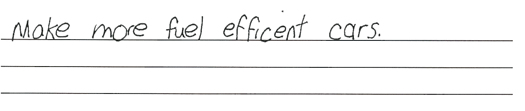 Make more fuel efficent cars.